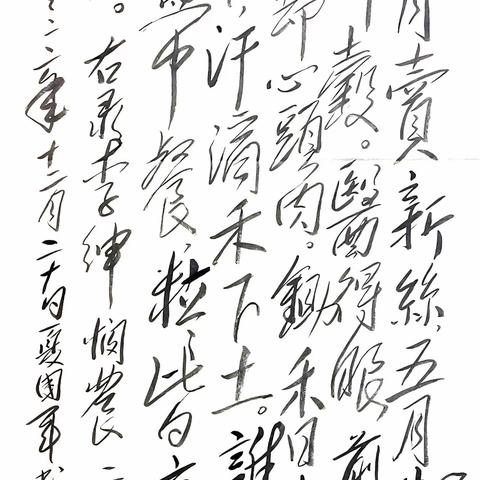 月賣新絲，五月
穀。醫得眼前
却心頭肉。鋤禾日
汗滴禾下土。誰
中餐，粒粒皆
。右录李紳憫農二
年十二月二十日夏國軍书